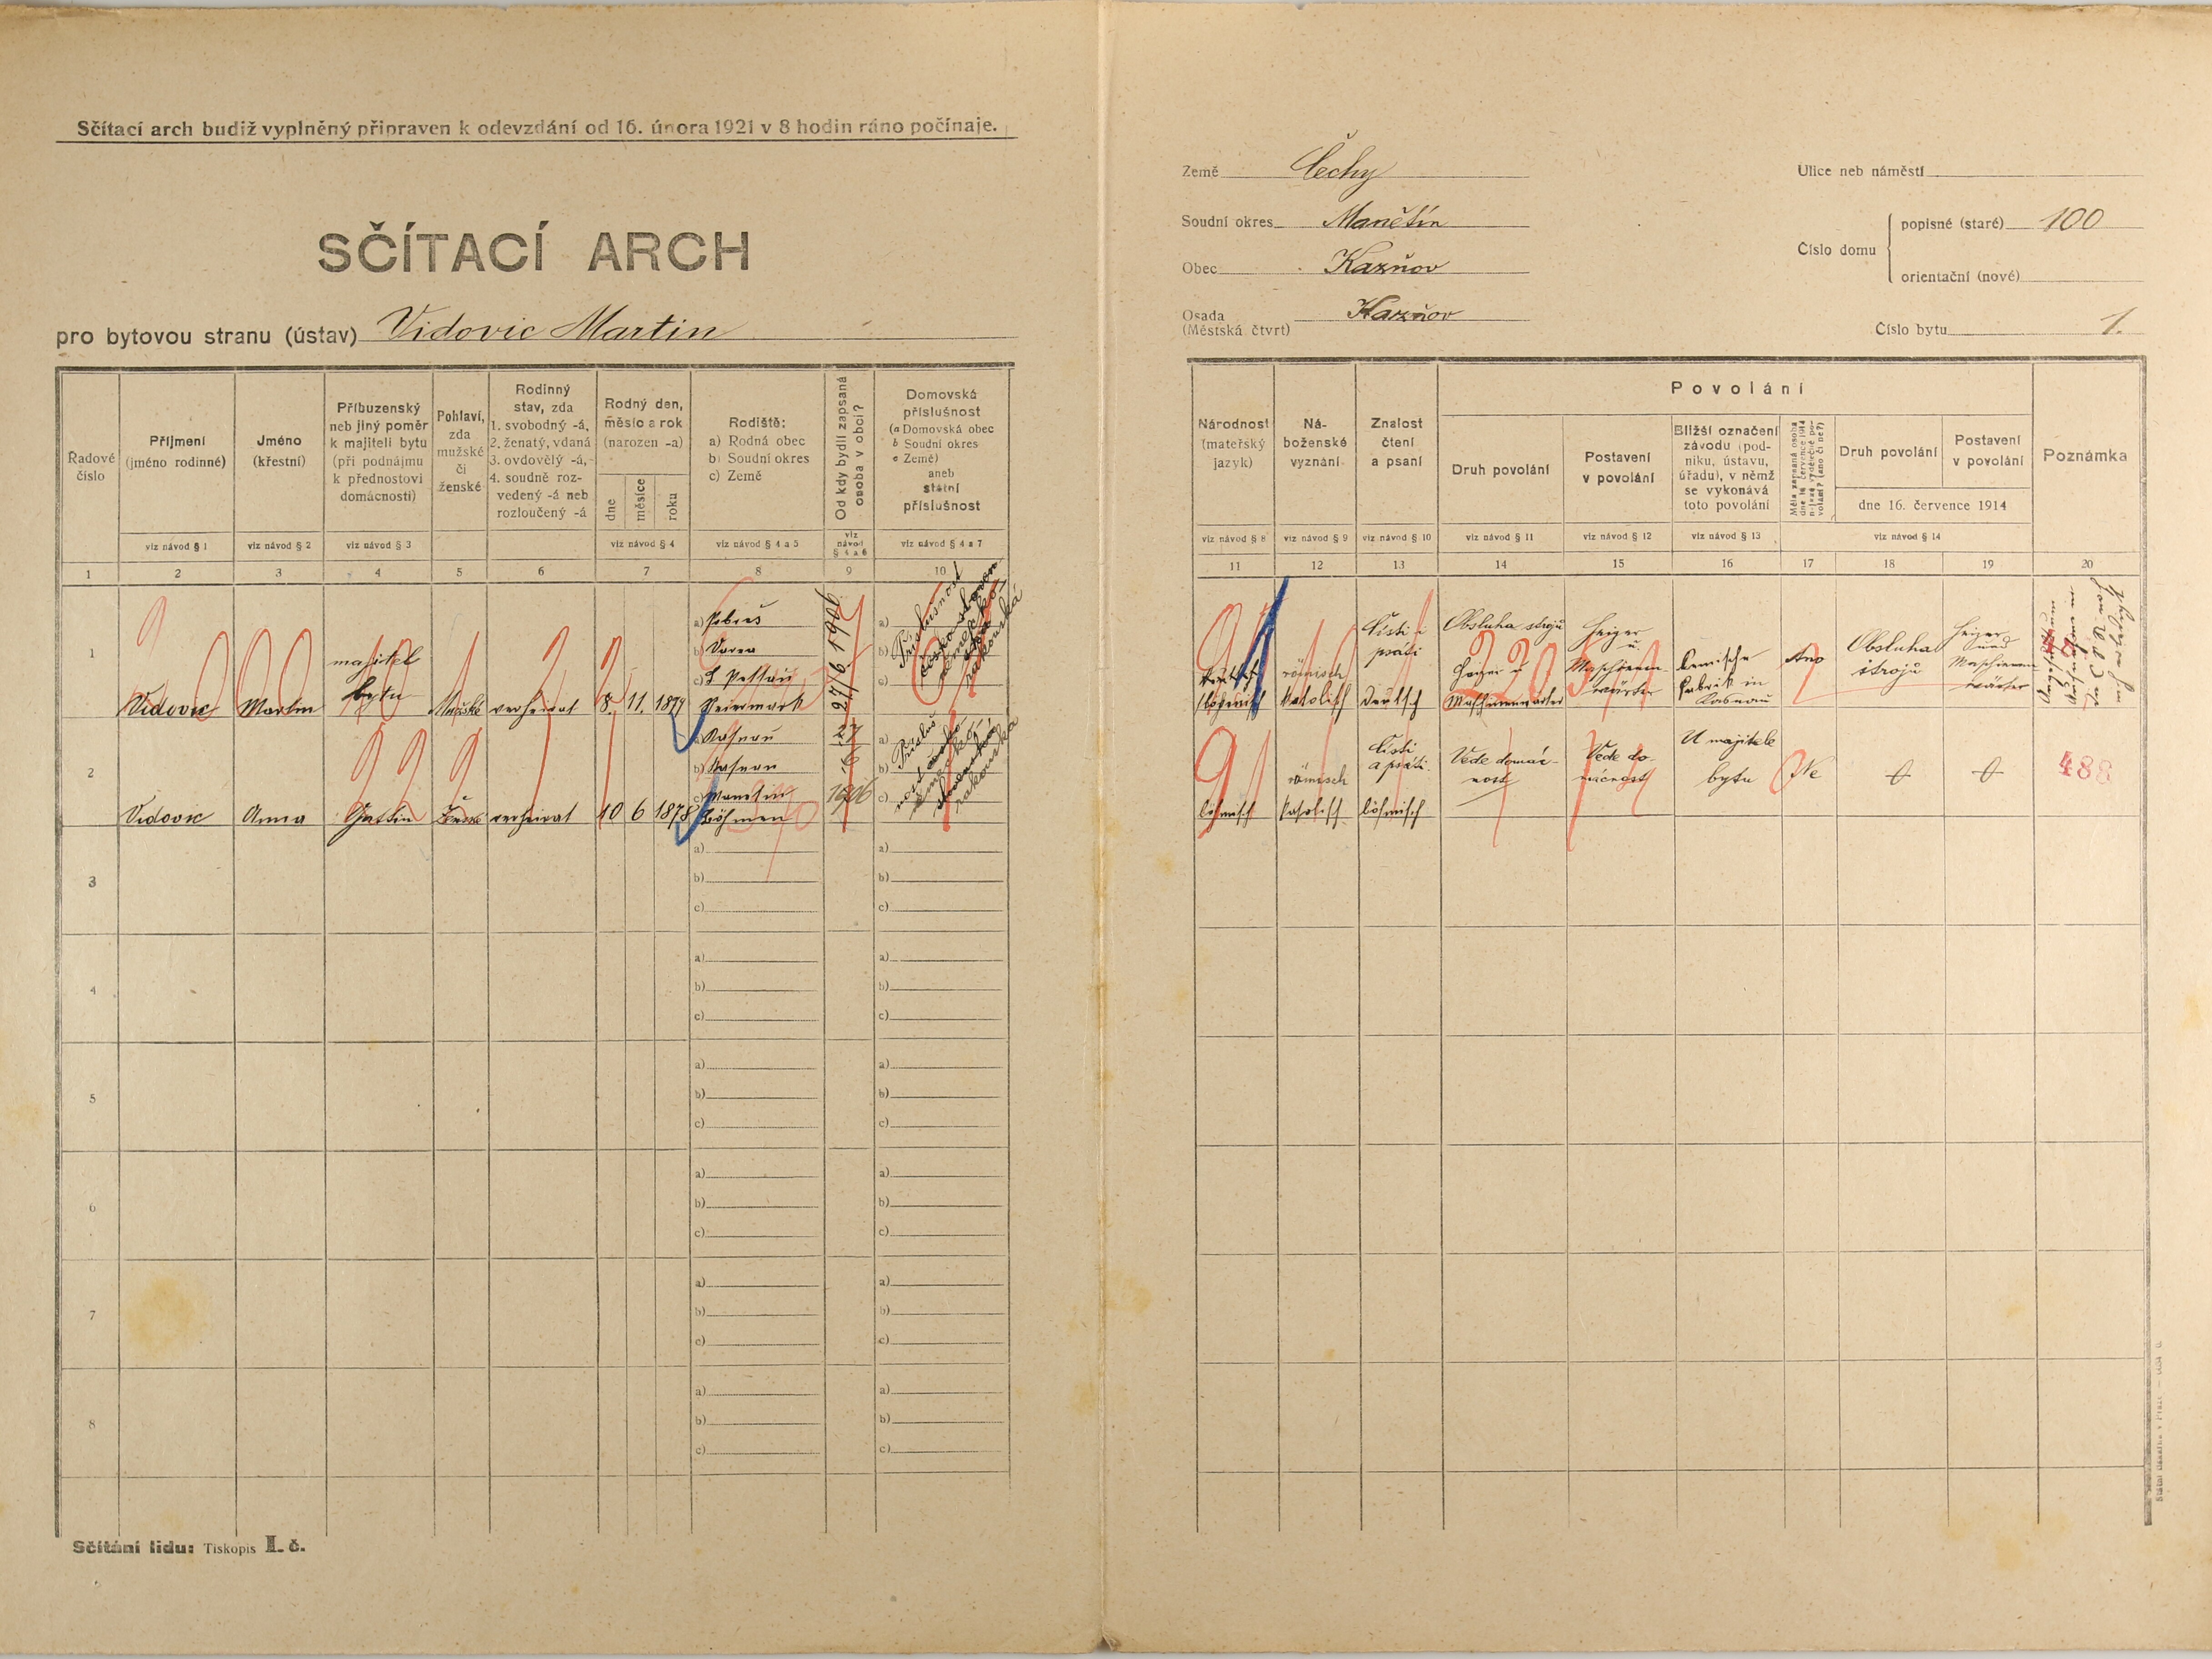 Sčítací arch budiž vyplněný připraven k odevzdání od 16. února 1921 v 8 hodin ráno počínaje.
SČÍTACÍ ARCH
pro bytovou stranu (ústav) Vidovic Martin
Země Čechy
Soudní okres Manětín
Obec Kazňov
Osada Kazňov
(Městská čtvrt)
Ulice neb náměstí
Číslo domu
popisné (staré) 100
orientační (nové)
Číslo bytu 1.
Řadové číslo
Příjmení (jméno rodinné)
viz návod § 1
Jméno (křestní)
viz návod § 2
Příbuzenský neb jiný poměr k majiteli bytu (při podnájmu k přednostovi domácnosti)
viz návod § 3
Pohlaví, zda mužské či ženské
Rodinný stav, zda
1. svobodný -á,
2. ženatý, vdaná
3. ovdovělý -á,
4. soudně rozvedený -á neb rozloučený -á
Rodný den, měsíc a rok (narozen -a)
dne
měsíce
roku
viz návod § 4
Rodiště:
a) Rodná obec
b) Soudní okres
c) Země
viz návod § 4 a 5
Od kdy bydlí zapsaná osoba v obci?
viz návod § 4 a 6
Domovská příslušnost
(a Domovská obec
b Soudní okres
c Země)
aneb
státní
příslušnost
viz návod § 4 a 7
Národnost (mateřský jazyk)
viz návod § 8
Náboženské vyznání
viz návod § 9
Znalost čtení a psaní
viz návod § 10
Povolání
Druh povolání
viz návod § 11
Postavení v povolání
viz návod § 12
Bližší označení závodu (podniku, ústavu, úřadu), v němž se vykonává toto povolání
viz návod § 13
Druh povolání
Postavení v povolání
dne 16. července 1914
viz návod § 14
Poznámka
1 2 3 4 5 6 7 8 9 10
11 12 13 14 15 16 17 18 19 20
1
Vidovic
Martin
majitel
bytu
Mužské
verheirat
8. 11. 1879
a)
b)
c)
27/6 1906
a)
b)
c)
böhmisch
römisch
katolisch
Čísti i
psáti
deutsch
Obsluha strojů
Heizer u
Maschinenwärter
Heizer
u.
Maschinen
wärter
Kemische
Fabrik in
Kasnau
Ano
Obsluha
strojů
Heizer
und
Maschinen
wärter
2
Vidovic
Anna
Gattin
Ženské
verheirat
10 6 1878
a) Kasnau
b) Kasnau
c) Manetin
Böhmen
27
6
1906
a)
b)
c)
böhmisch
römisch
katolisch
Čísti
a psáti.
böhmisch
Vede domác-
nost
Vede do-
mácnost
U majitele
bytu
Ne
0
0
488
3
a)
b)
c)
a)
b)
c)
4
a)
b)
c)
a)
b)
c)
5
a)
b)
c)
a)
b)
c)
6
a)
b)
c)
a)
b)
c)
7
a)
b)
c)
a)
b)
c)
8
a)
b)
c)
a)
b)
c)
Sčítání lidu: Tiskopis I. č.